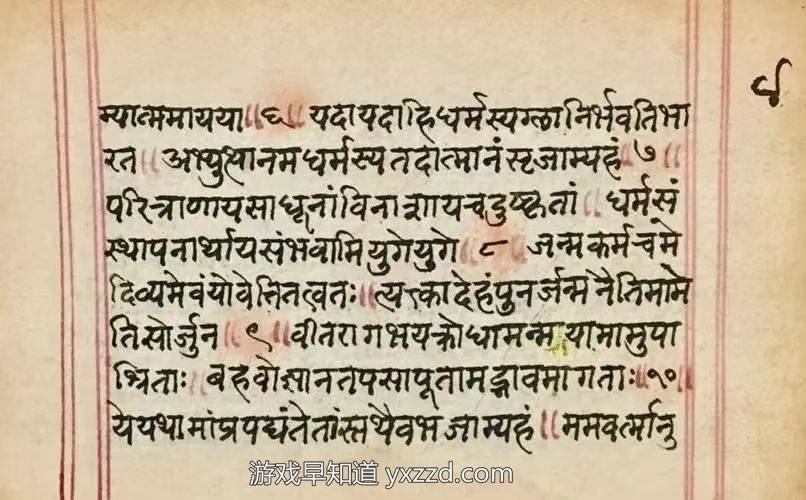 ४
म्यात्ममायया॥६॥यदायदाहिधर्मस्यग्लानिर्भवतिभा
रत॥अभ्युत्थानमधर्मस्यतदात्मानंसृजाम्यहं॥७॥
परित्राणायसाधूनांविनाशायचदुष्कृतां॥धर्मसं
स्थापनार्थायसंभवामियुगेयुगे॥८॥जन्मकर्मचमे
दिव्यमेवंयोवेत्तितत्वतः॥त्यक्त्कादेहंपुनर्जन्मनैतिमामे
तिसोर्जुन॥९॥वीतरागभयक्रोधामन्मयामामुपा
श्रिताः॥बहवोज्ञानतपसापूतामद्भावमागताः॥१०॥
येयथामांप्रपद्यंतेतांस्तथैवभजाम्यहं॥ममवर्त्मानु
游戏早知道 yxzzd.com